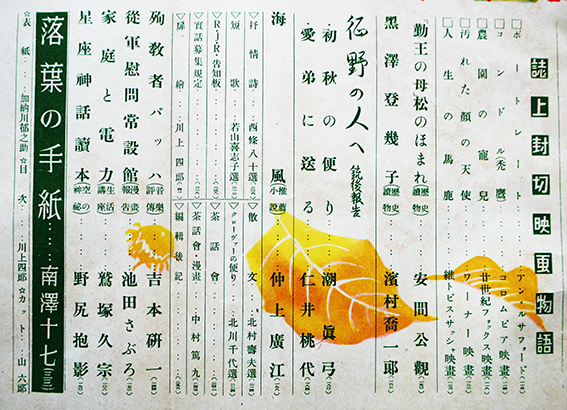 誌上封切映画物語
□ポートレート……アン・ルサフォード
□コンドル(禿鷹)……コロムビア映畫
□農園の寵兒……廿世紀フォックス映畫
□汚れた顔の天使……ワーナー映畫
□人生の馬鹿……維トビス・サッシャ映畫
「勤王の母松のほまれ」歴史讀物……安間公觀
黒澤登幾子 歴史讀物……濱村喬一郎
征野の人へ 銃後報告
・初秋の便り……潮眞弓
・愛弟に送る……仁井桃代
海……風 推薦小說 仲上廣江
▽抒情詩……西條八十選
▽散文……北村壽夫選
▽短歌……若山喜志子選
▽クローヴァーの便り……北川千代選
▽R・J・R・告知板
▽茶話會
▽實話募集規定
▽茶話會漫畫……中村篤九
▽扉繪……川上四郎
▽編輯後記
殉教者バッハ 音樂評傳……吉本研一
從軍慰問常設館 慢報告……池田さぶろ
家庭と電力 生活講話……鷲塚久宗
星座神話讀本 空の神秘……野尻抱影
落葉の手紙……南澤十七
☆表紙……加納川郁之助☆目次……川上四郎☆カット……山六郎